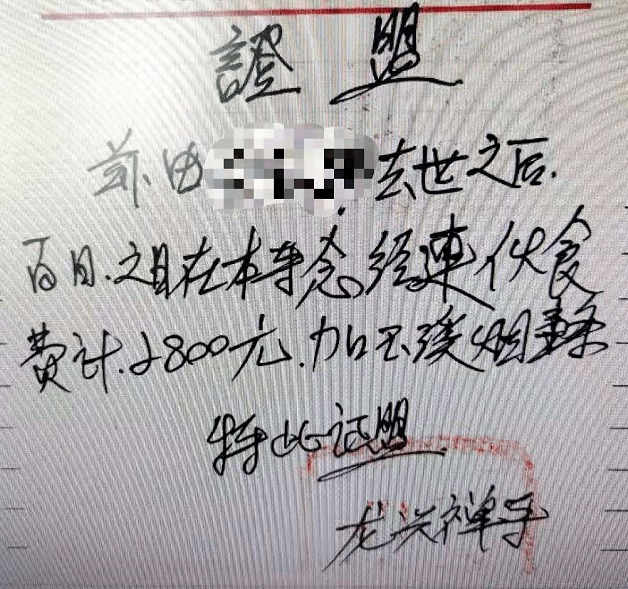 證盟
兹由 去世之后.
百日.之日在本寺念经連伙食
费计.2800元.加玉溪烟
特此证盟
龙兴禅寺